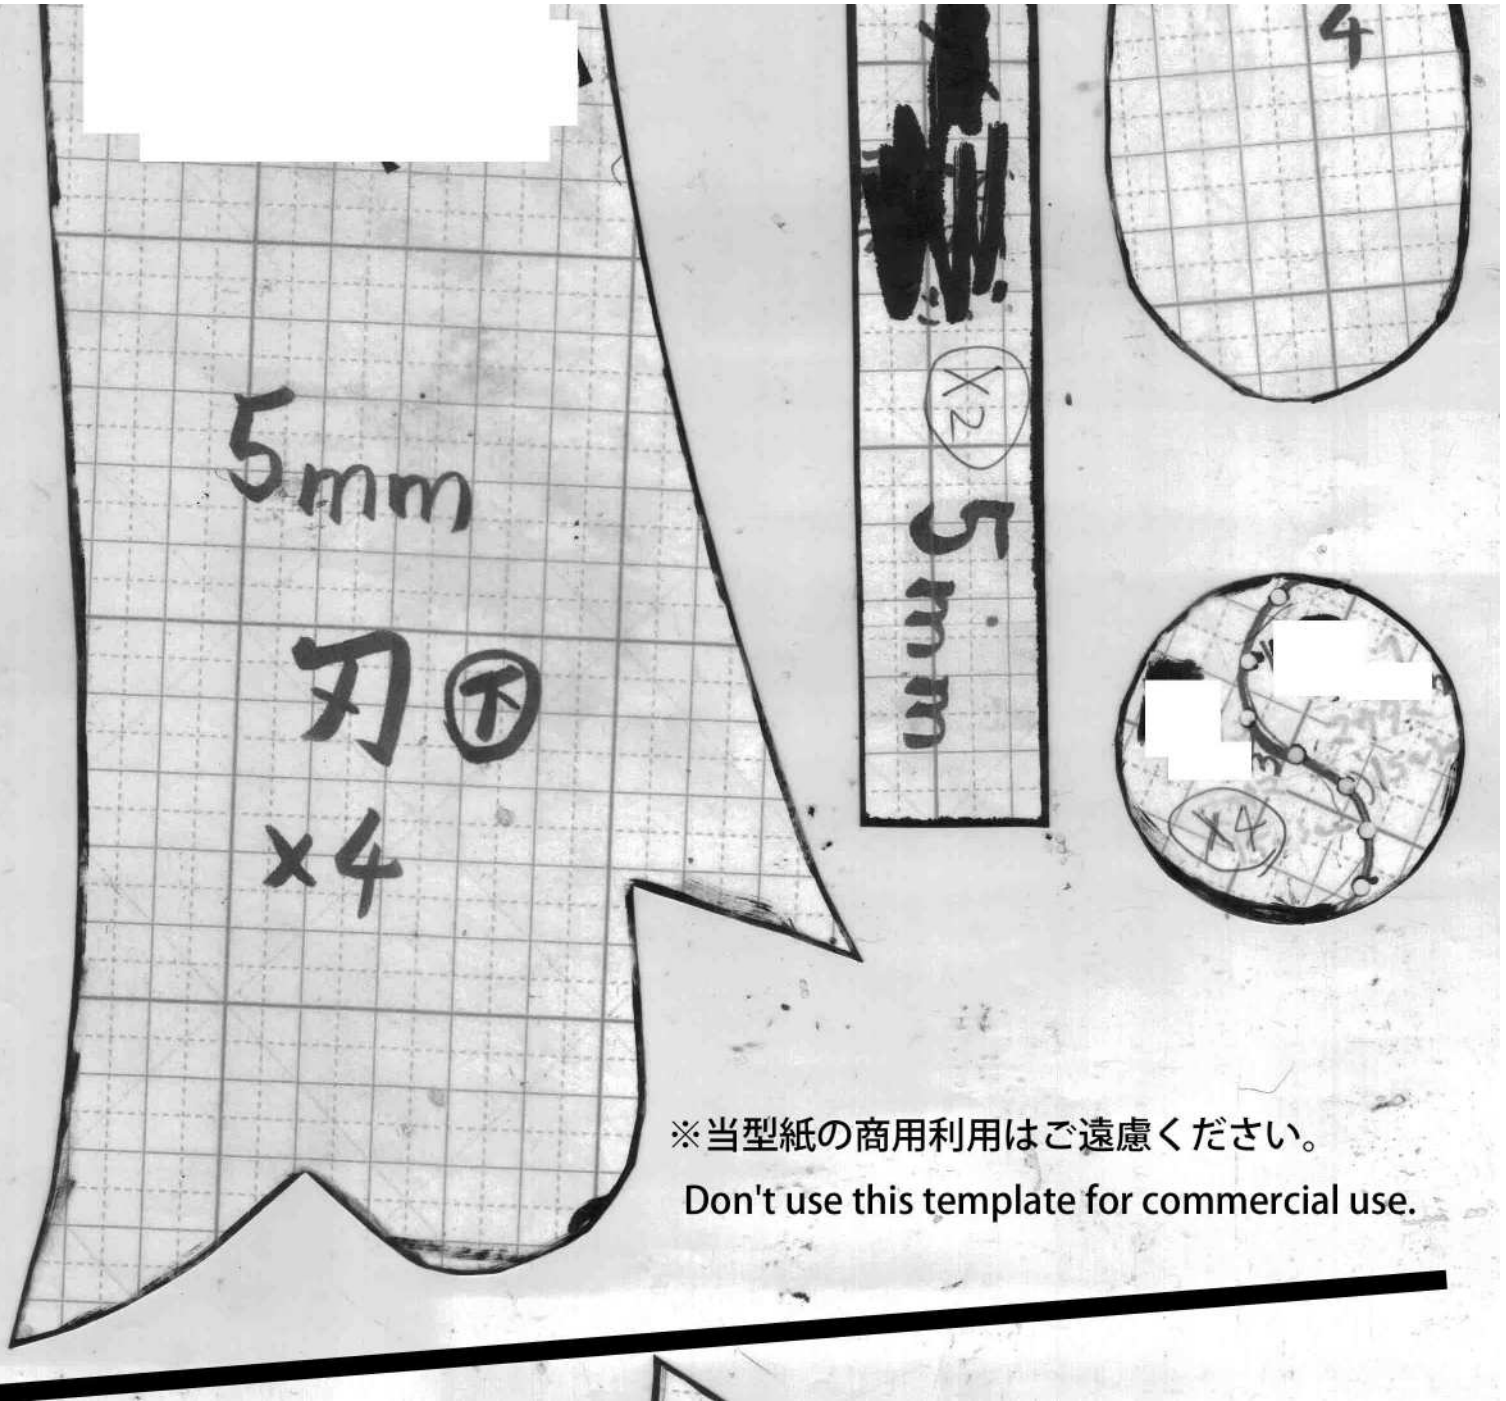 5mm
刃 下
×4
×2
5mm
4
×4
※当型紙の商用利用はご遠慮ください。
Don't use this template for commercial use.